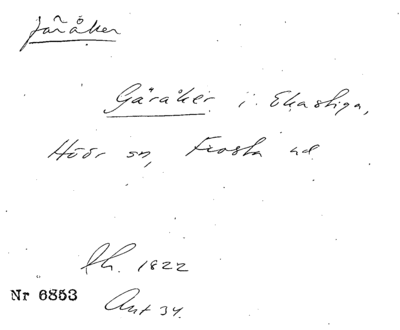 Järåker
Gäråker i Ekastiga,
Höör sn, Frosta hd
Lh. 1822
Nr 6853
Ant 34.